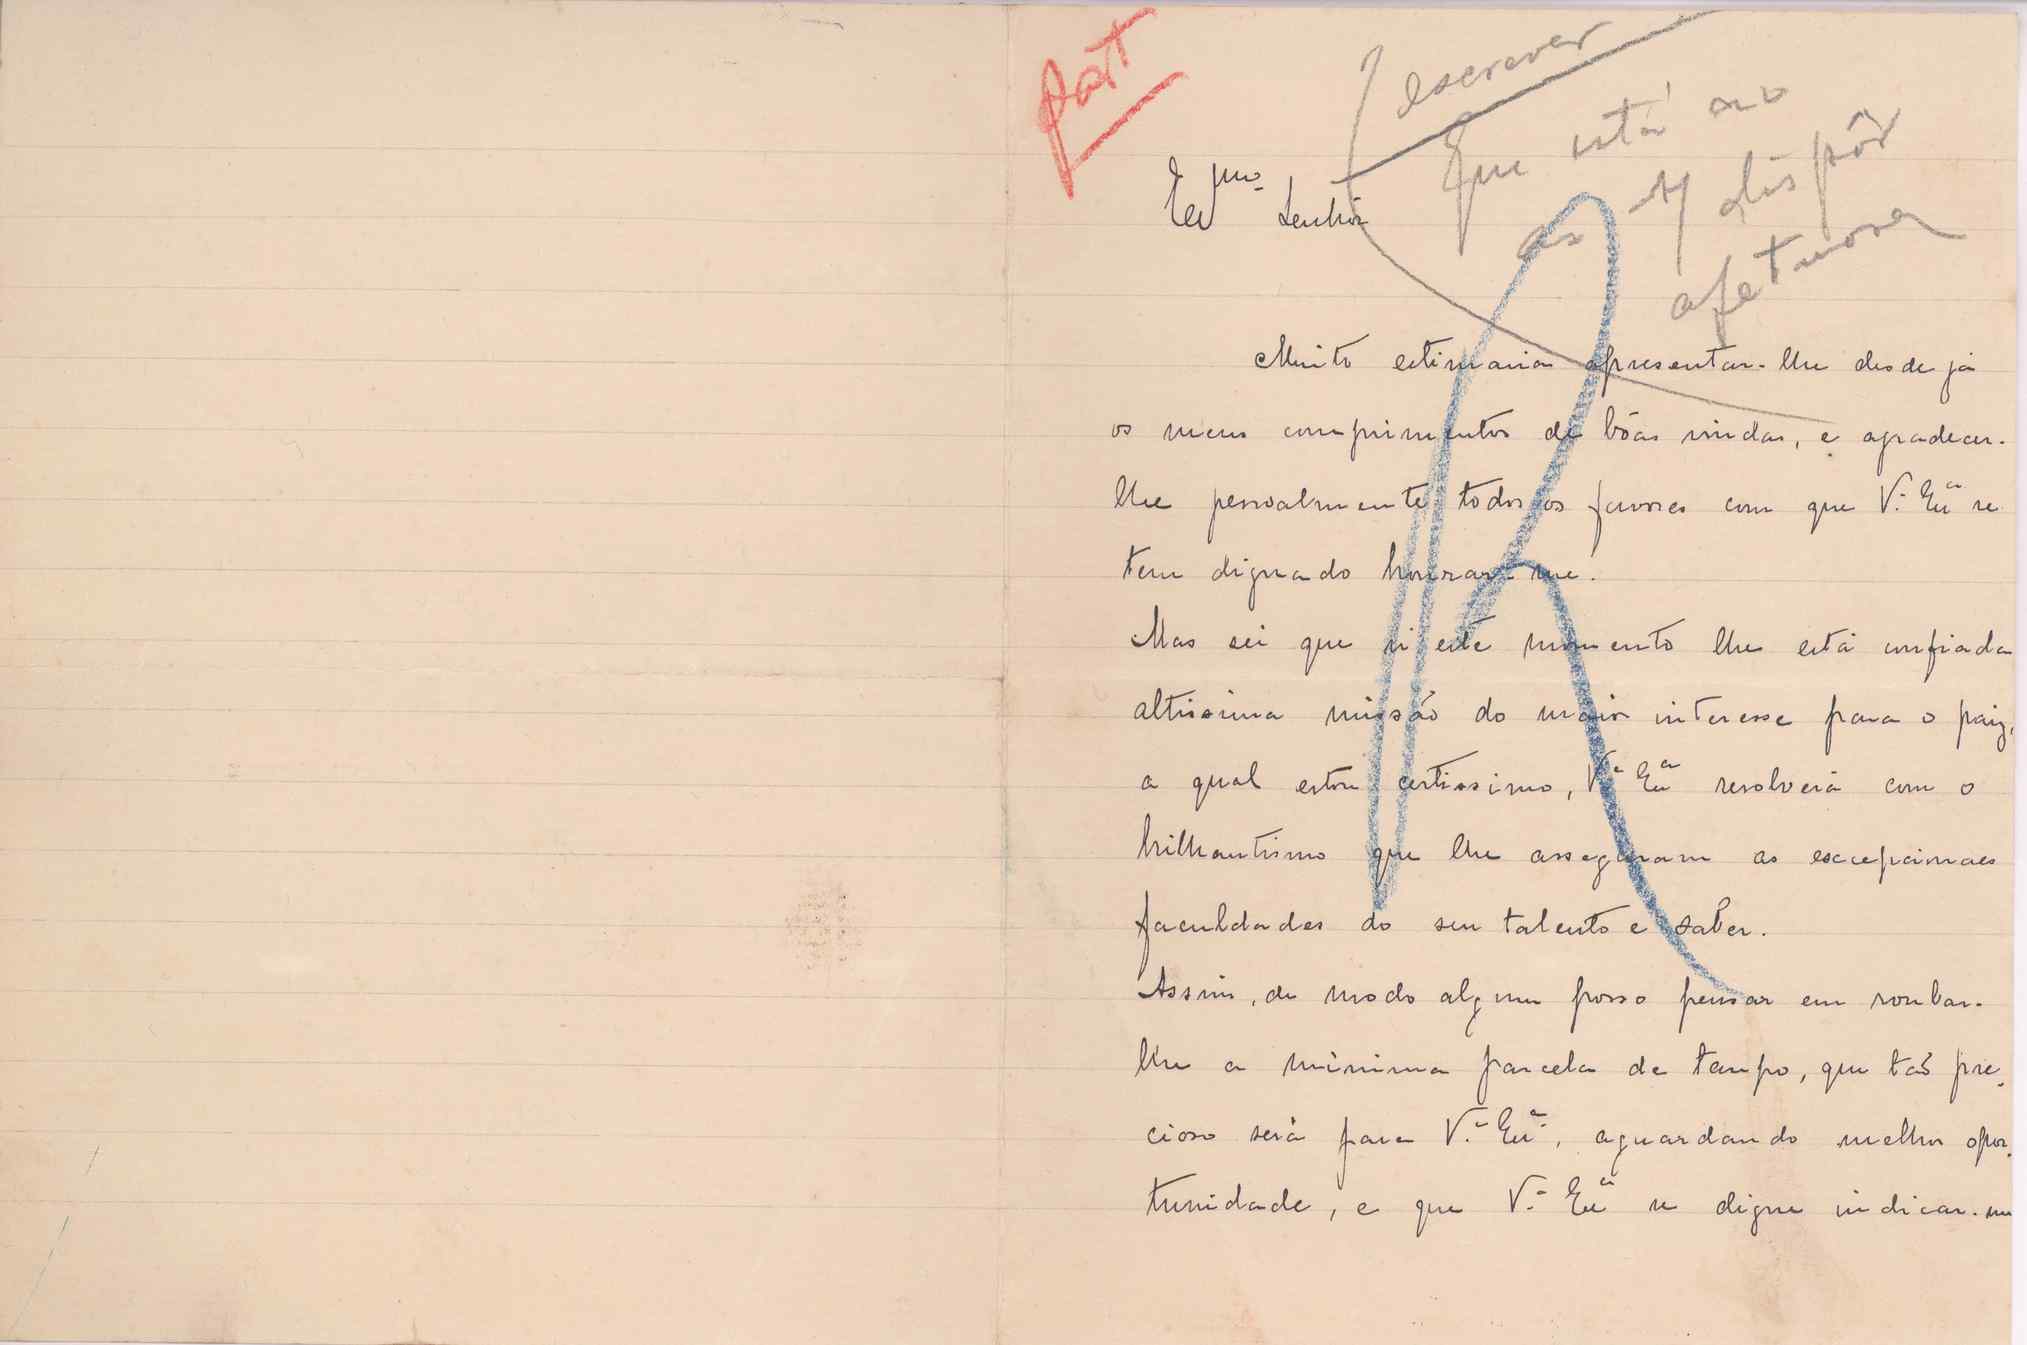 Pat
escrever
que está ao
dispôr
afetuosa
Ex.mo Senhôr
Muito estimaria apresentar-lhe desde já
os meus comprimentos de bôas vindas, e agradecer-
lhe pessoalmente todos os favores com que V.ª Exª se
tem dignado honrar-me.
Mas sei que n'este momento lhe está confiada
altissima missão do maior interesse para o paiz,
a qual estou certissimo, V.ª Exª resolverá com o
brilhantismo que lhe asseguram as excepcionaes
faculdades do seu talento e saber.
Assim, de modo algum posso pensar em roubar-
lhe a minima parcela de tempo, que tão pre-
cioso será para V.ª Exª, aguardando melhor opor-
tunidade, e que V.ª Exª se digne indicar-me